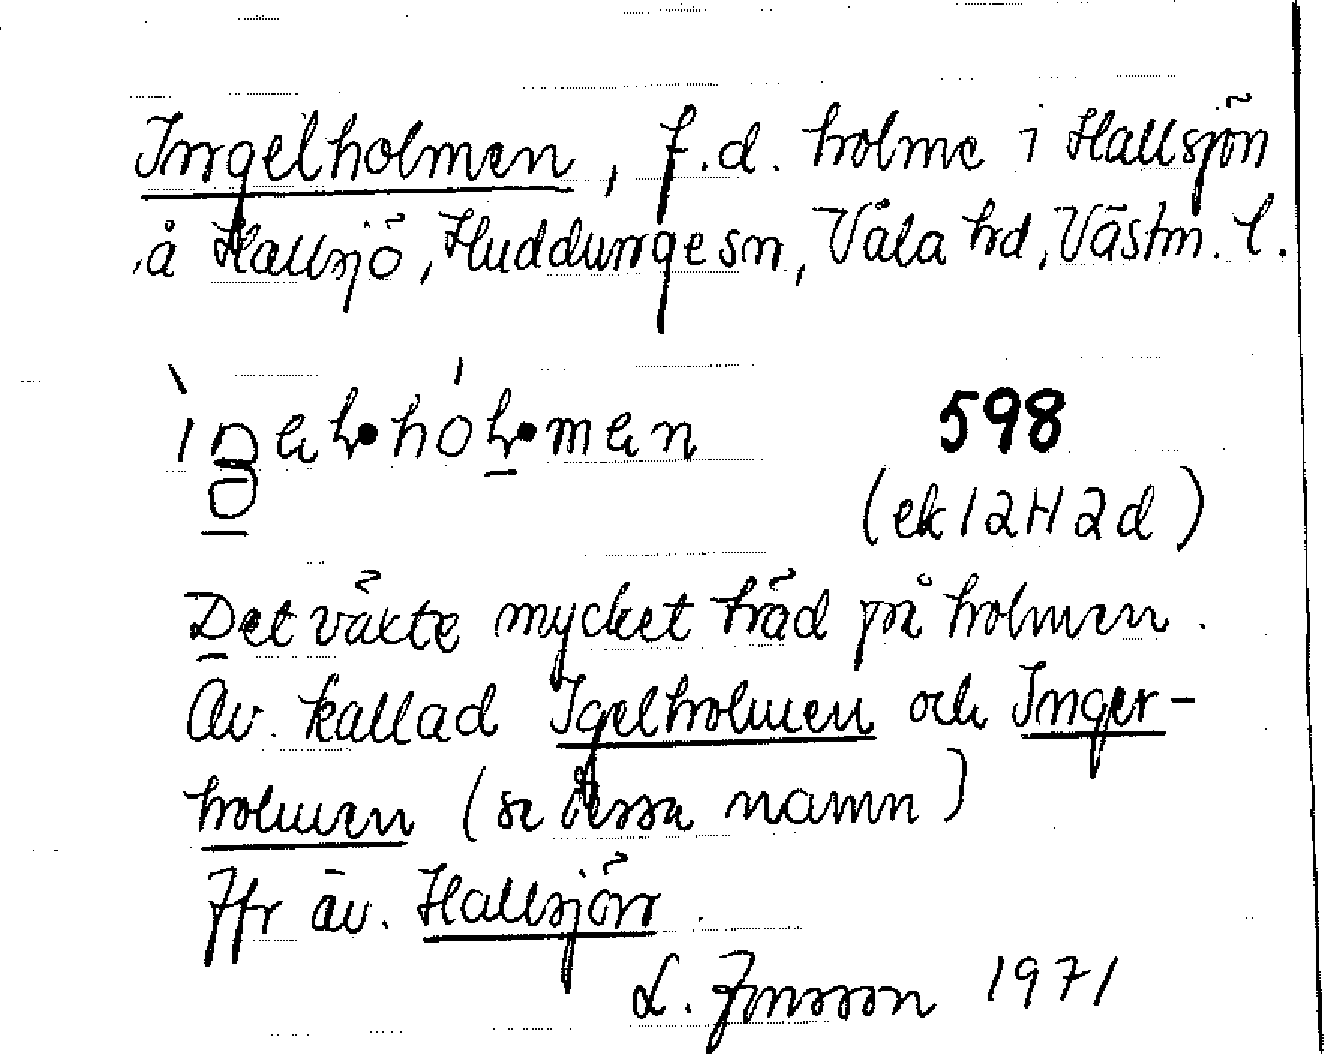 Ingelholmen, f.d. holme i Hallsjön
å Hallsjö, Huddunge sn, Våla hd, Västm. l.
598
(ek 12H2d)
Det växte mycket träd på holmen.
Äv. kallad Igelholmen och Inger-
holmen (se dessa namn)
Jfr äv. Hallsjön
L. Jonsson 1971